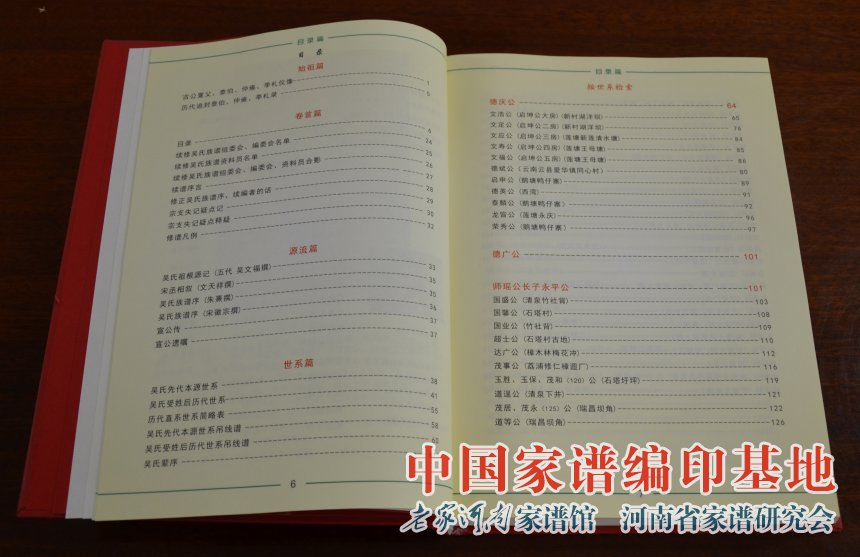 目录篇
目 录
始祖篇
古公亶父、泰伯、仲雍、季札仪像 1
历代追封泰伯、仲雍、季札录 5
卷首篇
目录 6
续修吴氏族谱组委会、编委会名单 24
续修吴氏族谱资料员名单 25
续修吴氏族谱组委会、编委会、资料员合影 26
续谱序言 27
修正吴氏族谱序、续编者的话 28
宗支失记疑点记 29
宗支失记疑点释疑 30
修谱凡例 32
源流篇
吴氏祖根源记(五代 吴文福撰) 33
宋丞相叙(文天祥撰) 35
吴氏族谱序(朱熹撰) 35
吴氏族谱序(宋徽宗撰) 36
宣公传 37
宣公遗嘱 37
世系篇
吴氏先代本源世系 38
吴氏受姓后历代世系 41
历代直系世系简略表 55
吴氏先代本源世系吊线谱 58
吴氏受姓后历代世系吊线谱 60
吴氏辈序
6
目录篇
按世系检索
德庆公 64
文浩公(启坤公大房)(新村湖洋坝) 65
文茳公(启坤公二房)(新村湖洋坝) 76
文应公(启坤公三房)(莲塘新莲清水塘) 84
文寿公(启坤公四房)(莲塘王母塘) 85
文福公(启坤公五房)(莲塘王母塘) 86
德斌公(云南云县爱华镇同心村) 80
启申公(鹅塘鸭仔寨) 89
德英公(西湾) 91
泰麟公(鹅塘鸭仔寨) 92
龙智公(莲塘永庆) 96
荣秀公(鹅塘鸭仔寨) 97
德广公 101
师瑶公长子永平公 101
国盛公(清泉竹社背) 103
国馨公(石塔村) 108
国业公(竹社背) 109
超士公(石塔村古地) 110
达广公(樟木林梅花冲) 112
茂事公(荔浦修仁樟迴厂) 116
玉胜、玉保、茂和(120)公(石塔圩坪) 119
道逞公(清泉下井) 121
茂居、茂永(125)公(瑞昌坝角) 122
道等公(瑞昌坝角) 126
中国家谱编印基地
老家河南家谱馆 河南省家谱研究会